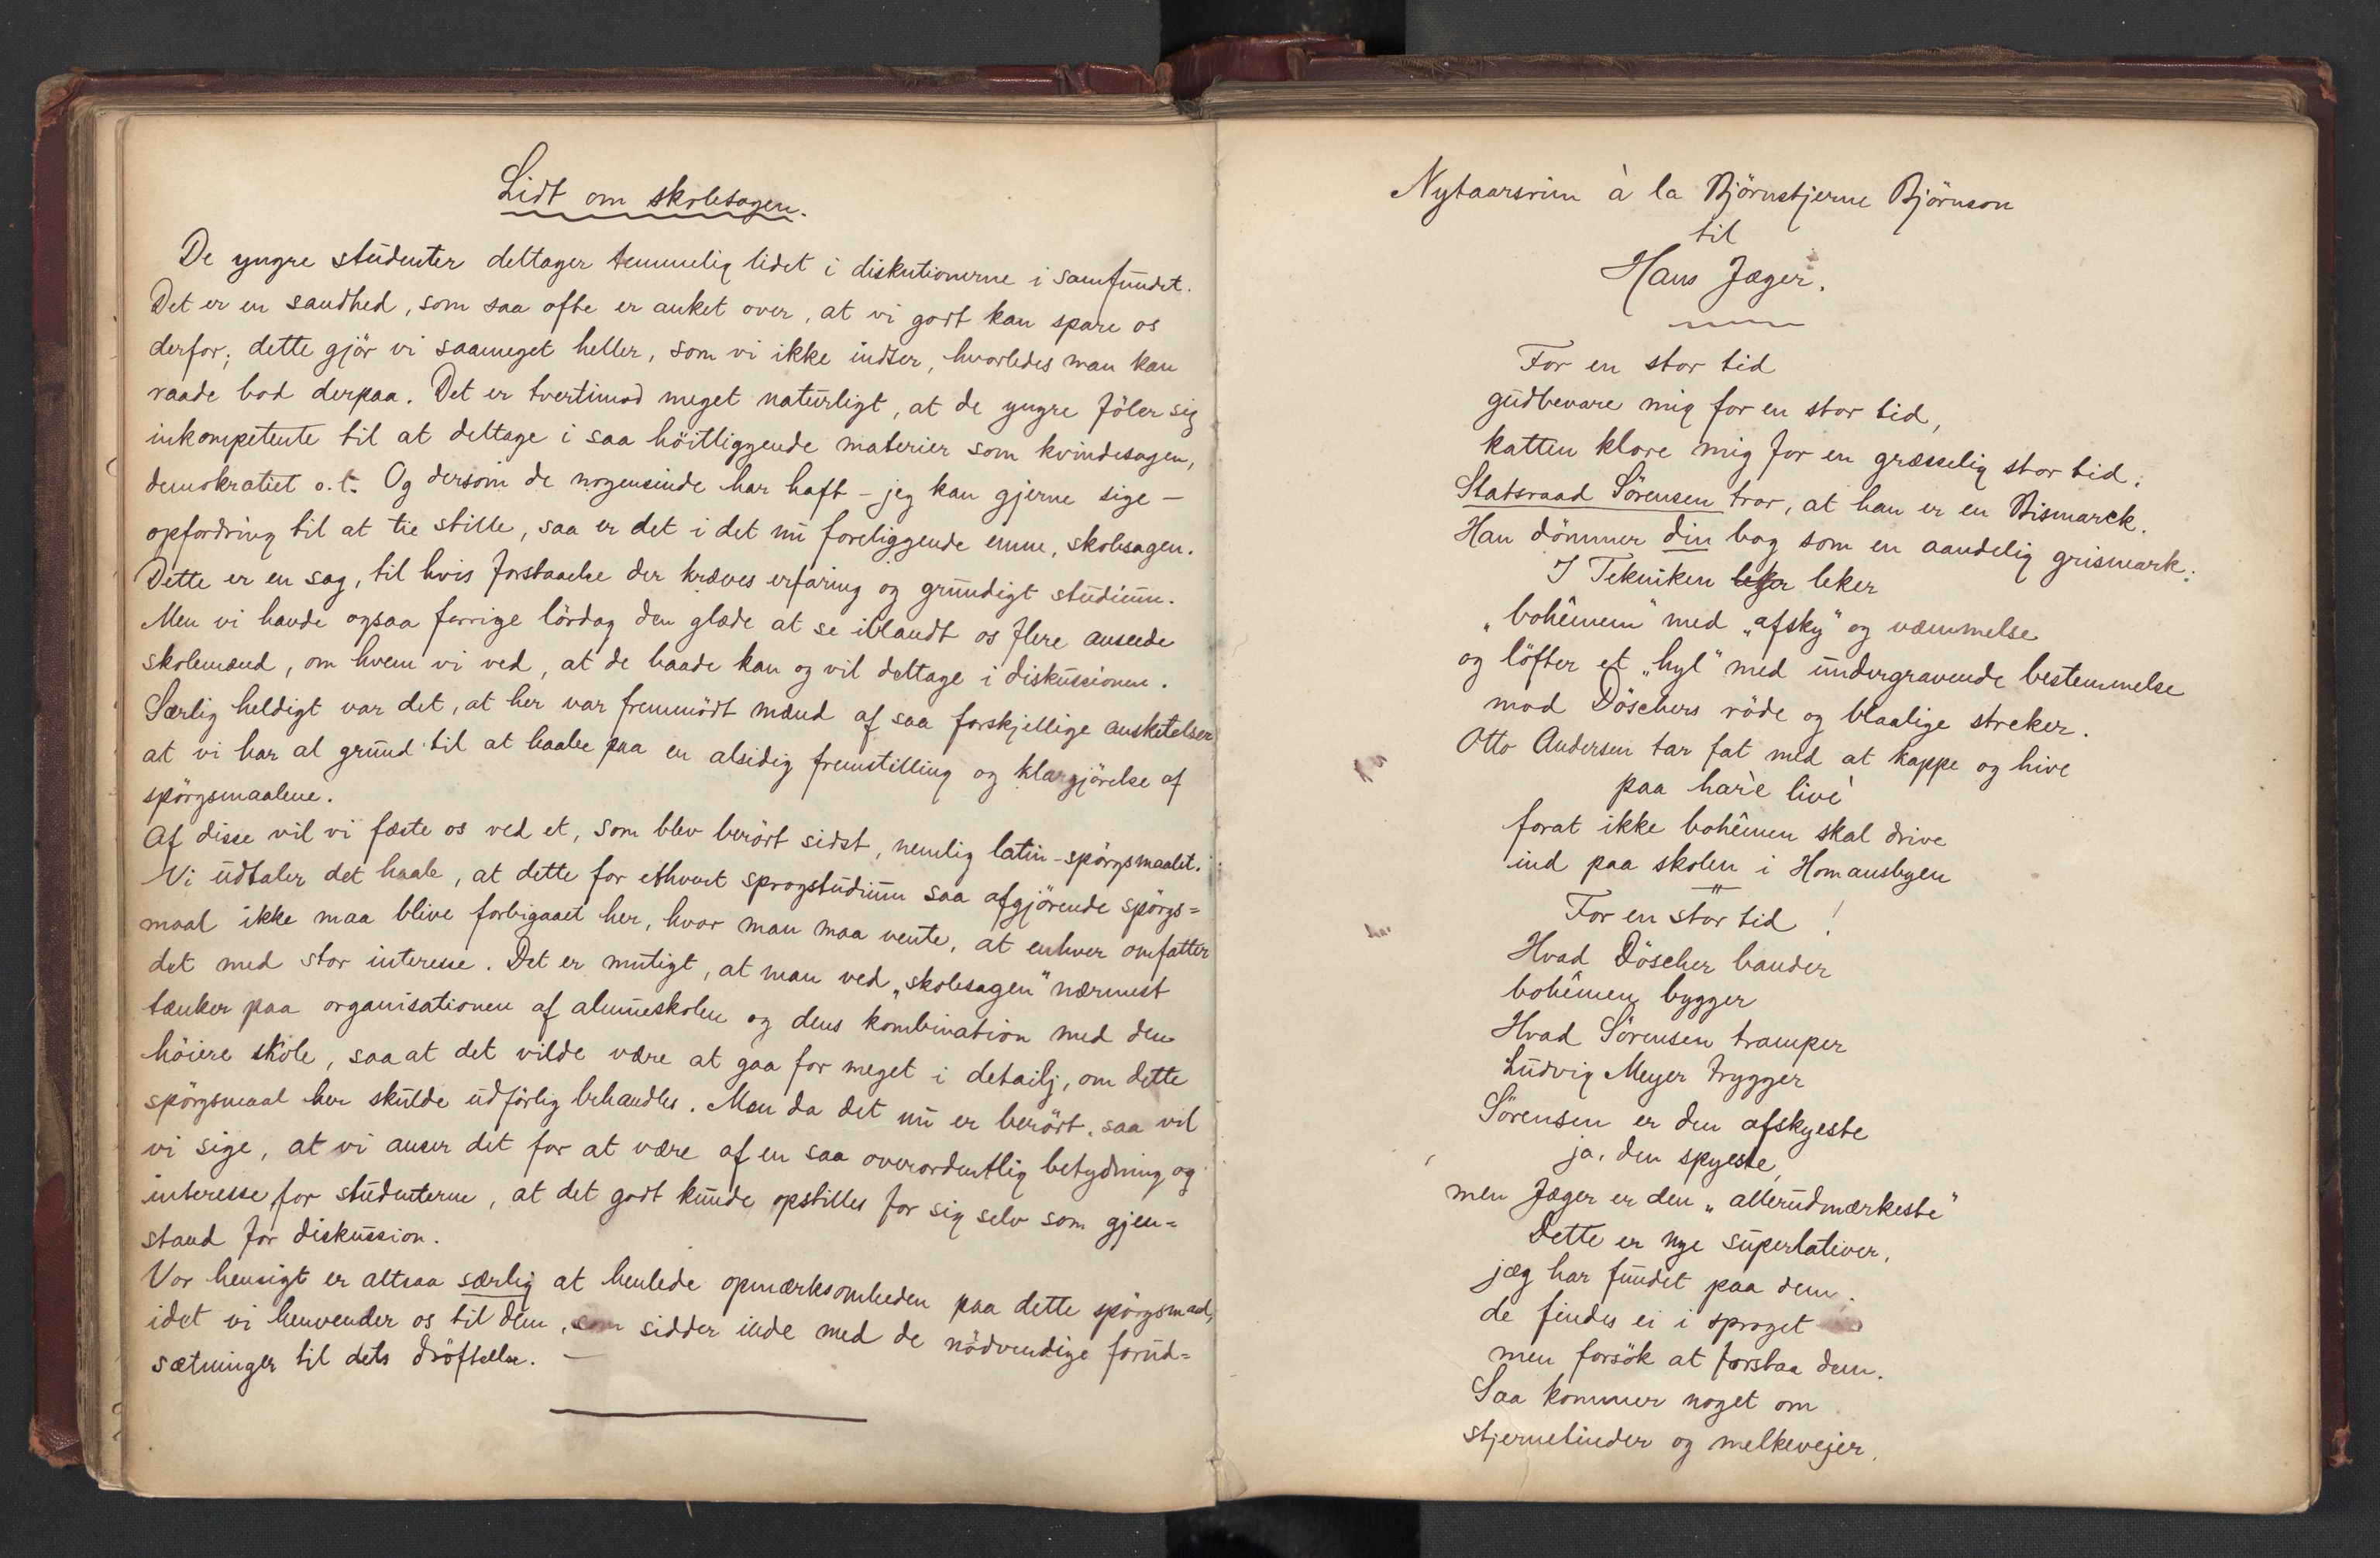 Lidt om skolesagen.
De yngre studenter deltager temmelig lidet i diskutionerne i samfundet.
Det er en sandhed, som saa ofte er anket over, at vi godt kan spare os
derfor; dette gjör vi saameget heller, som vi ikke indser, hvorledes man kan
raade bod derpaa. Det er tvertimod meget naturligt, at de yngre föler sig
inkompetente til at deltage i saa höitliggende materier som kvindesagen,
demokratiet o.l. Og dersom de nogensinde har haft – jeg kan gjerne sige –
opfordring til at tie stille, saa er det i det nu foreliggende emne, skolesagen.
Dette er en sag, til hvis forstaaelse der kræves erfaring og grundigt studium.
Men vi havde ogsaa forrige lördag den glæde at se iblandt os flere ansede
skolemænd, om hvem vi ved, at de baade kan og vil deltage i diskussionen.
Særlig heldigt var det, at her var fremmödt mænd af saa forskjellige anskuelser
at vi har al grund til at haabe paa en alsidig fremstilling og klargjörelse af
spörgsmaalene.
Af disse vil vi fæste os ved et, som blev berört sidst, nemlig latin-spörgsmaalet.
Vi udtaler det haab, at dette for ethvert sprogstudium saa afgjörende spörgs=
maal ikke maa blive forbigaaet her, hvor man maa vente, at enhver omfatter
det med stor interesse. Det er muligt, at man ved „skolesagen" nærmest
tænker paa organisationen af almueskolen og dens kombination med den
höiere skole, saa at det vilde være at gaa for meget i detailj, om dette
spörgsmaal her skulde udförlig behandles. Men da det nu er berört, saa vil
vi sige, at vi anser det for at være af en saa overordentlig betydning og
interesse for studenterne, at det godt kunde opstilles for sig selv som gjen=
stand for diskussion.
Vor hensigt er altsaa særlig at henlede opmærksomheden paa dette spörgsmaal,
idet vi henvender os til dem, som sidder inde med de nödvendige forud=
sætninger til dets dröftelse. —
Nytaarsrim à la Björnstjerne Björnson
til
Hans Jæger.
For en stor tid
gudbevare mig for en stor tid,
katten klore mig for en græsselig stor tid:
Statsraad Sörensen tror, at han er en Bismarck.
Han dömmer din bog som en aandelig grismark:
I Tekniken leger leker
„bohêmen" med „afsky" og væmmelse
og löfter et „hyl" med undergravende bestemmelse
mod Döschers röde og blaalige streker.
Otto Andersen tar fat med at kappe og hive
paa harè livè
forat ikke bohêmen skal drive
ind paa skolen i Homansbyen
"
For en stor tid !
Hvad Döscher bander
bohêmen bygger
Hvad Sörensen tramper
Ludvig Meyer trygger
Sörensen er den afskyeste
ja, den spyeste,
men Jæger er den „allerudmærkeste"
Dette er nye superlativer,
jæg har fundet paa dem;
de findes ei i sproget
men forsök at forstaa dem.
Saa kommer noget om
stjernetinder og melkevejer.